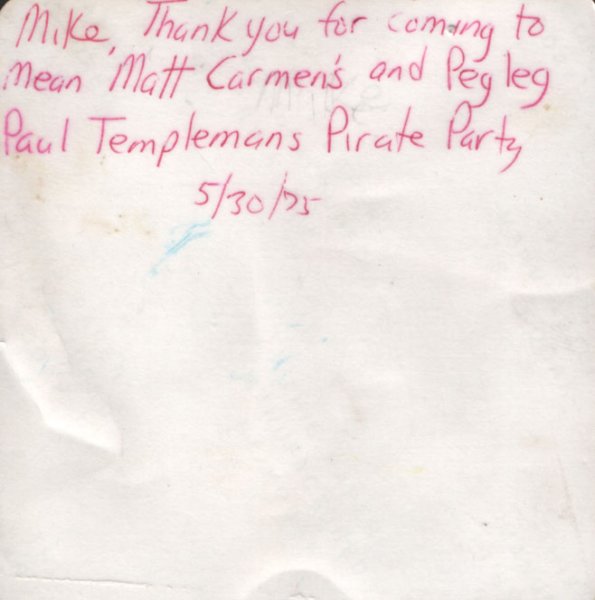 Mike, Thank you for coming to
Mean Matt Carmen's and Peg leg
Paul Templemans Pirate Party
5/30/75